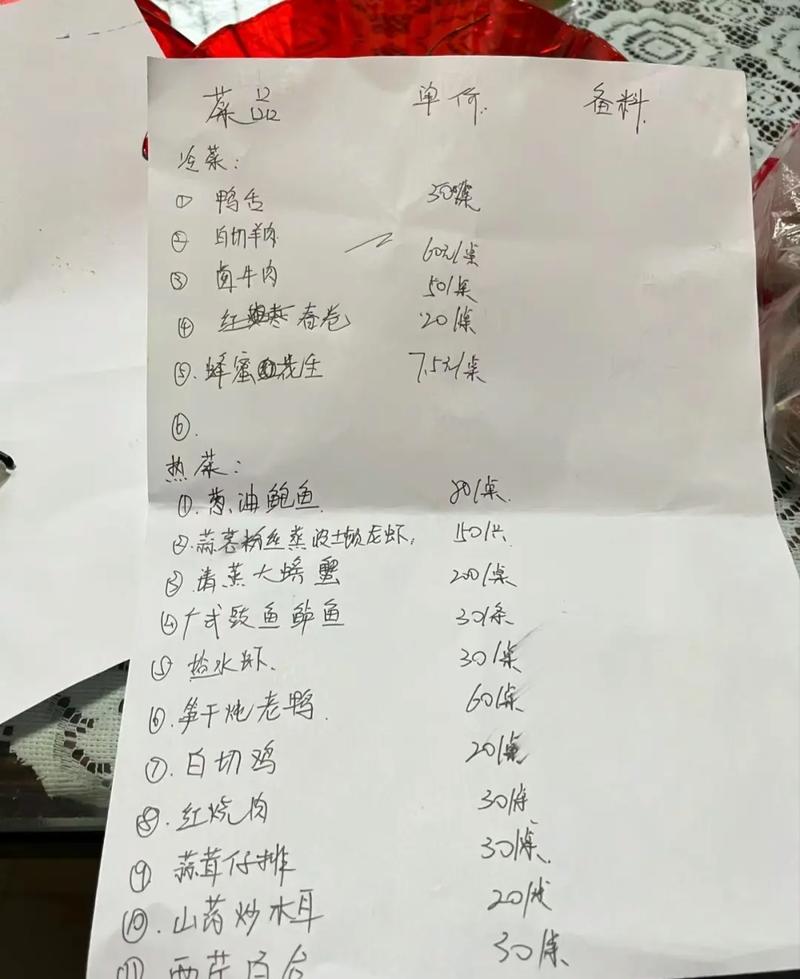 菜品 单价 备料
冷菜:
① 鸭舌 35/桌
② 白切羊肉 60元/桌
③ 卤牛肉 50/桌
④ 红枣 春卷 20/桌
⑤. 蜂蜜花生 7.5元/桌
⑥.
热菜:
①. 葱油鲍鱼 80/桌.
②. 蒜茸粉丝蒸波士顿龙虾. 150/只
③ 清蒸大螃蟹 200/桌
④ 广式鼓鱼鲈鱼 30/条
⑤ 水虾. 30/桌
⑥. 笋干炖老鸭. 60/桌
⑦. 白切鸡 20/桌
⑧. 红烧肉 30/桌
⑨ 蒜茸仔排 30/桌.
⑩. 山药炒木耳 20/桌
⑪ 西芹百合 30/桌